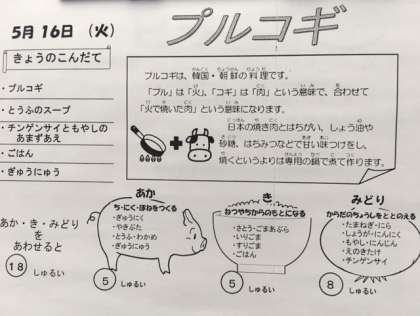 5月16日（火）
プルコギ
きょうのこんだて
・プルコギ
・とうふのスープ
・チンゲンサイともやしの
あまずあえ
・ごはん
・ぎゅうにゅう
プルコギは、韓国・朝鮮の料理です。
「プル」は「火」、「コギ」は「肉」という意味で、合わせて
「火で焼いた肉」という意味になります。
日本の焼き肉とはちがい、しょう油や
砂糖、はちみつなどで甘い味つけをし、
焼くというよりは専用の鍋で煮て作ります。
あか・き・みどり
を
あわせると
18 しゅるい
あか
ち・にく・ほねをつくる
・ぎゅうにく
・やきぶた
・とうふ・わかめ
・ぎゅうにゅう
5 しゅるい
き
ねつやちからのもとになる
・さとう・ごまあぶら
・いりごま
・すりごま
・ごはん
5 しゅるい
みどり
からだのちょうしをととのえる
・たまねぎ・にら
・しょうが・にんにく
・もやし・にんじん
・えのきたけ
・チンゲンサイ
8 しゅるい